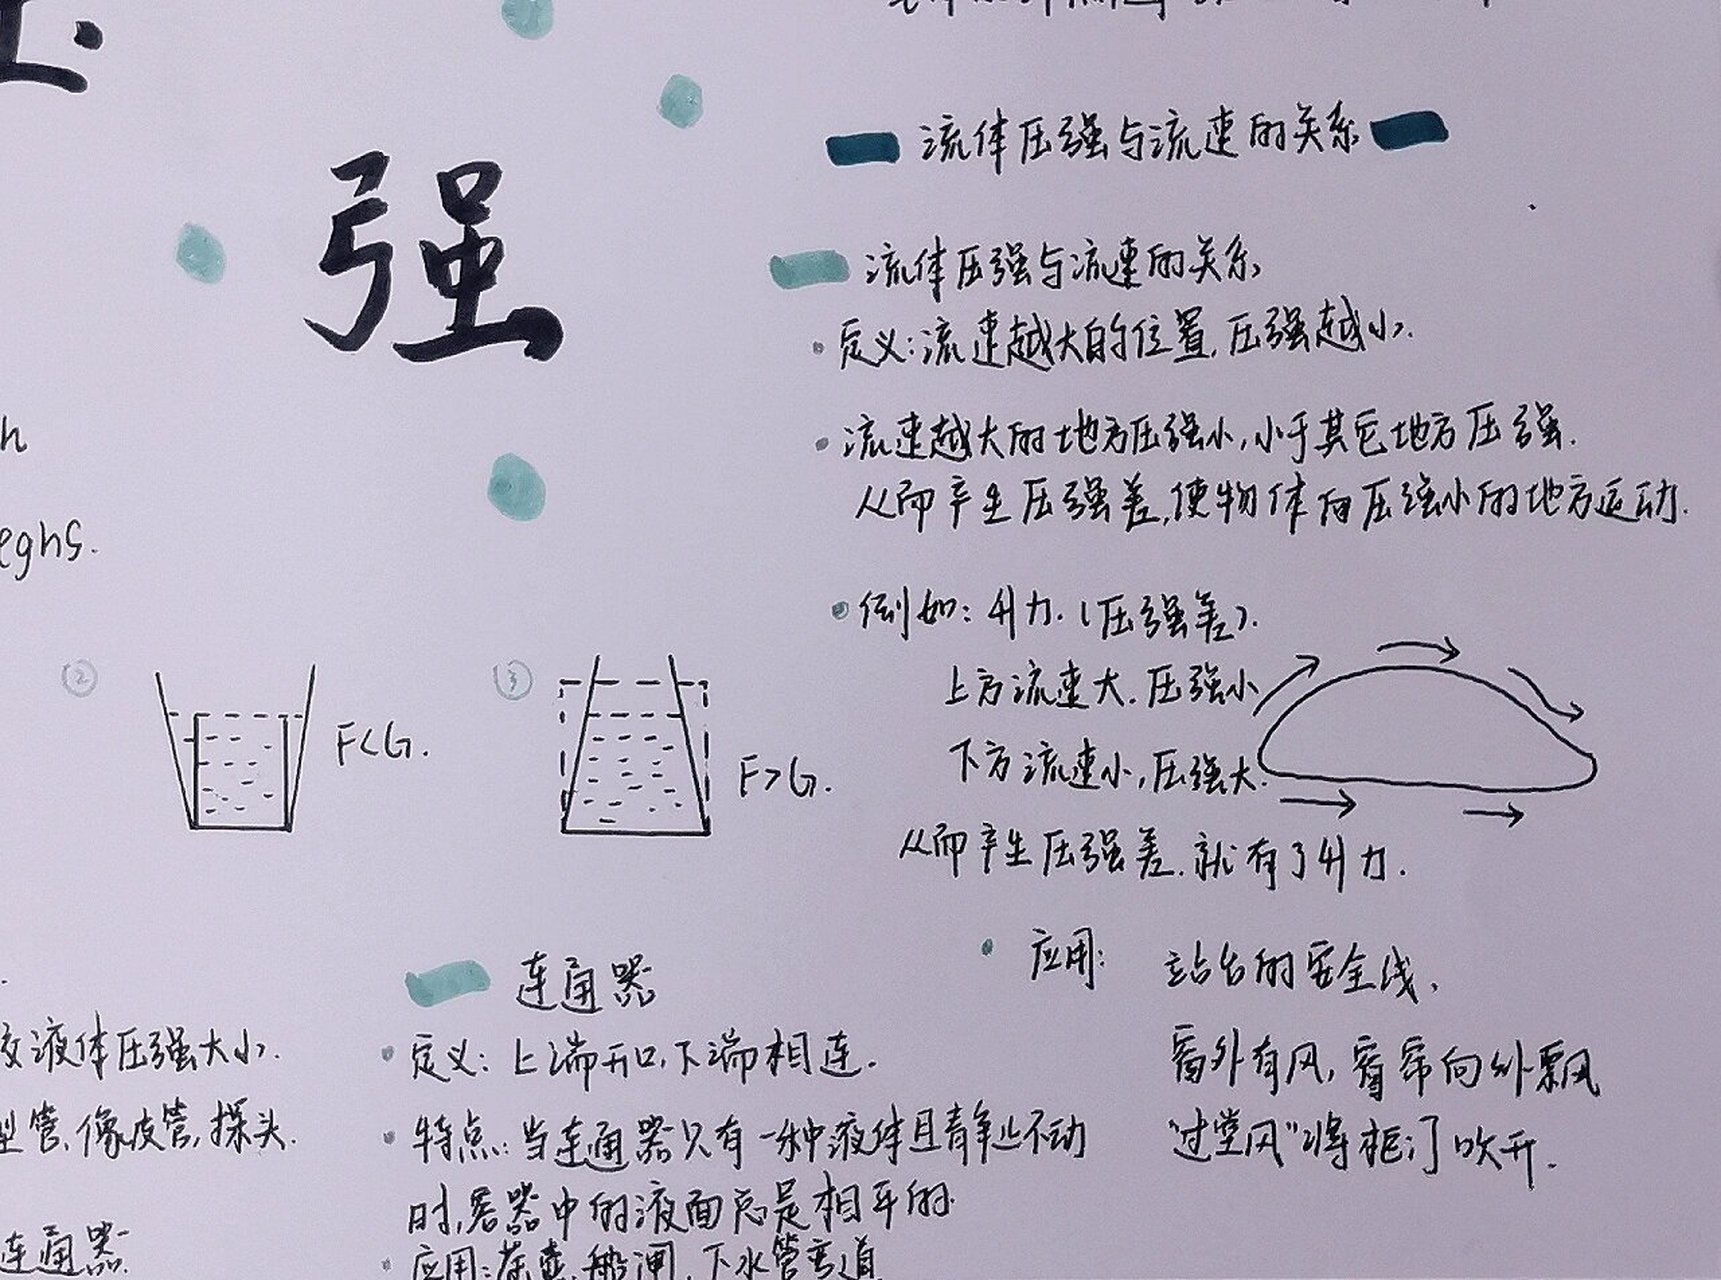 压
强
h
eghs.
②
F<G.
③
F>G.
液体压强大小.
型管,像皮管,探头.
连通器
连通器
定义:上端开口,下端相连.
特点:当连通器只有一种液体且静止不动
时,容器中的液面总是相平的.
应用:茶壶,船闸,下水管弯道
流体压强与流速的关系
流体压强与流速的关系
定义:流速越大的位置,压强越小.
流速越大的地方压强小,小于其它地方压强.
从而产生压强差,使物体向压强小的地方运动.
例如:升力.(压强差).
上方流速大.压强小
下方流速小,压强大.
从而产生压强差.就有了升力.
应用: 站台的安全线,
窗外有风,窗帘向外飘
"过堂风"将柜门吹开.